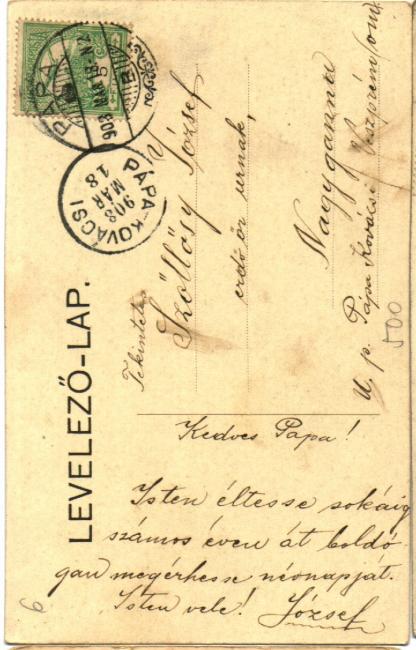 LEVELEZŐ-LAP.
PÁPA
PÁPA-KOVÁCSI
908 MÁR 18
Tekintetes
Szöllősy József
erdőőr urnak,
Nagyganna
U. p. Pápa Kovácsi Veszprém/om/
500
Kedves Papa!
Isten éltesse sokáig
számos éven át boldo
gan megérhesse néonapját.
Isten vele! József
6